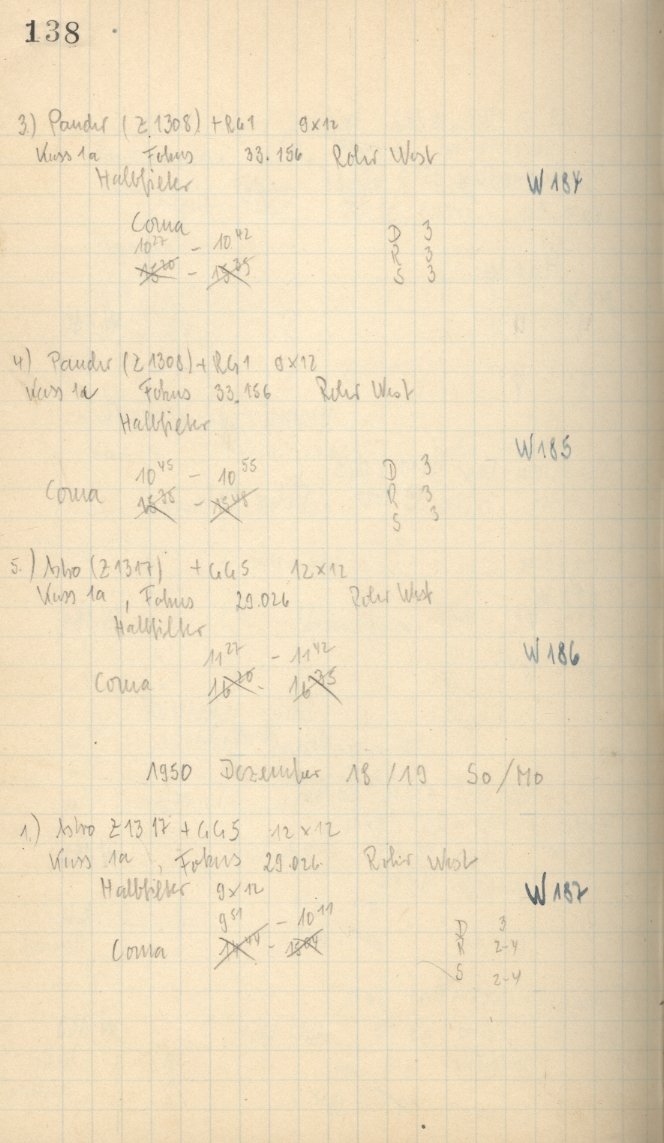 138
3.) Pandur (Z 1308) + RG1 9×12
Kass 1a Fokus 33.156 Rohr West
Halbfilter
W 184
Coma
10²⁷ – 10⁴² D 3
R 3
S 3
4) Pandur (Z 1308) + RG1 9×12
Kass 1a Fokus 33.156 Rohr West
Halbfilter
W 185
10⁴⁵ – 10⁵⁵ D 3
Coma R 3
S 3
5.) Astro (Z 1317) + GG5 12×12
Kass 1a, Fokus 29.026 Rohr West
Halbfilter
11²⁷ – 11⁴² W 186
Coma
1950 Dezember 18/19 So/Mo
1.) Astro Z 1317 + GG5 12×12
Kass 1a, Fokus 29.026 Rohr West
Halbfilter 9×12 W 187
9⁵¹ – 10¹¹ D 3
Coma R 2-4
S 2-4